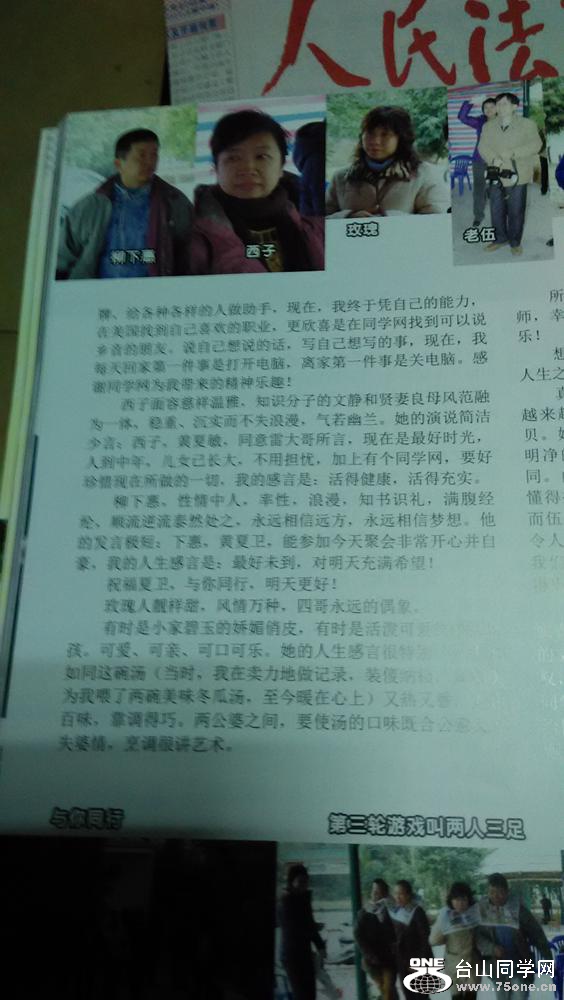 人民法
柳下惠
西子
玫瑰
老伍
聊、给各种各样的人做助手,现在,我终于凭自己的能力,
在美国找到自己喜欢的职业,更欣喜是在同学网找到可以说
乡音的朋友。说自己想说的话,写自己想写的事,现在,我
每天回家第一件事是打开电脑,离家第一件事是关电脑。感
谢同学网为我带来的精神乐趣!
西子面容慈祥温雅,知识分子的文静和贤妻良母风范融
为一体,稳重、沉实而不失浪漫,气若幽兰。她的演说简洁
少言:西子,黄夏敏,同意雷大哥所言,现在是最好时光,
人到中年,儿女已长大,不用担忧,加上有个同学网,要好
珍惜现在所做的一切,我的感言是:活得健康,活得充实。
柳下惠,性情中人,率性,浪漫,知书识礼,满腹经
纶,顺流逆流泰然处之,永远相信远方,永远相信梦想。他
的发言极短:下惠,黄夏卫,能参加今天聚会非常开心并自
豪,我的人生感言是:最好未到,对明天充满希望!
祝福夏卫,与你同行,明天更好!
玫瑰人靓祥甜,风情万种,四哥永远的偶象。
有时是小家碧玉的娇媚俏皮,有时是活泼可
孩。可爱、可亲、可口可乐。她的人生感言很特
如同这碗汤(当时,我在卖力地做记录,装傻
为我喂了两碗美味冬瓜汤,至今暖在心上)又热又香
百味,靠调得巧。两公婆之间,要使汤的口味既合公意又
失婆情,烹调很讲艺术。
所
师,幸
乐!
想
人生之
真
越来越
贝。她
明净的
同。
懂得
而伍
令人
我们
与你同行
第二轮游戏叫两人三足
ONE
台山同学网
www.75one.cn